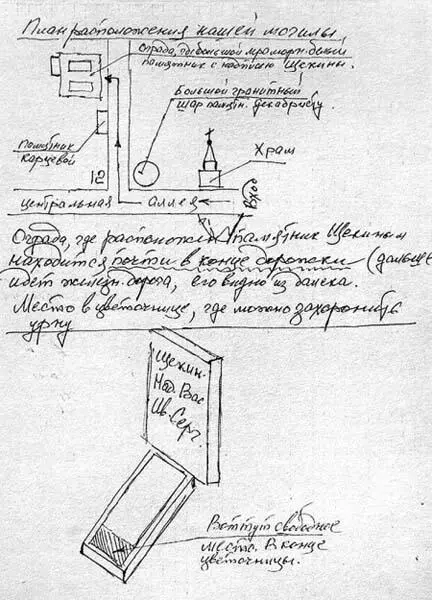 План расположения нашей могилы
Ограда, где большой мраморн. белый
памятник с надписью Щекины.
Большой гранитный
шар памятн. декабристу.
Памятник
Карцевой
Храм
12
Центральная аллея
Вход
Ограда, где расположен памятник Щекиным
находится почти в конце дорожки (дальше
идет железн. дорога, его видно из далека.
Место в цветочнице, где можно захоронить
урну
Щекин.
Над. Вас
Ив. Серг.
Вот тут свободное
место. В конце
цветочницы.